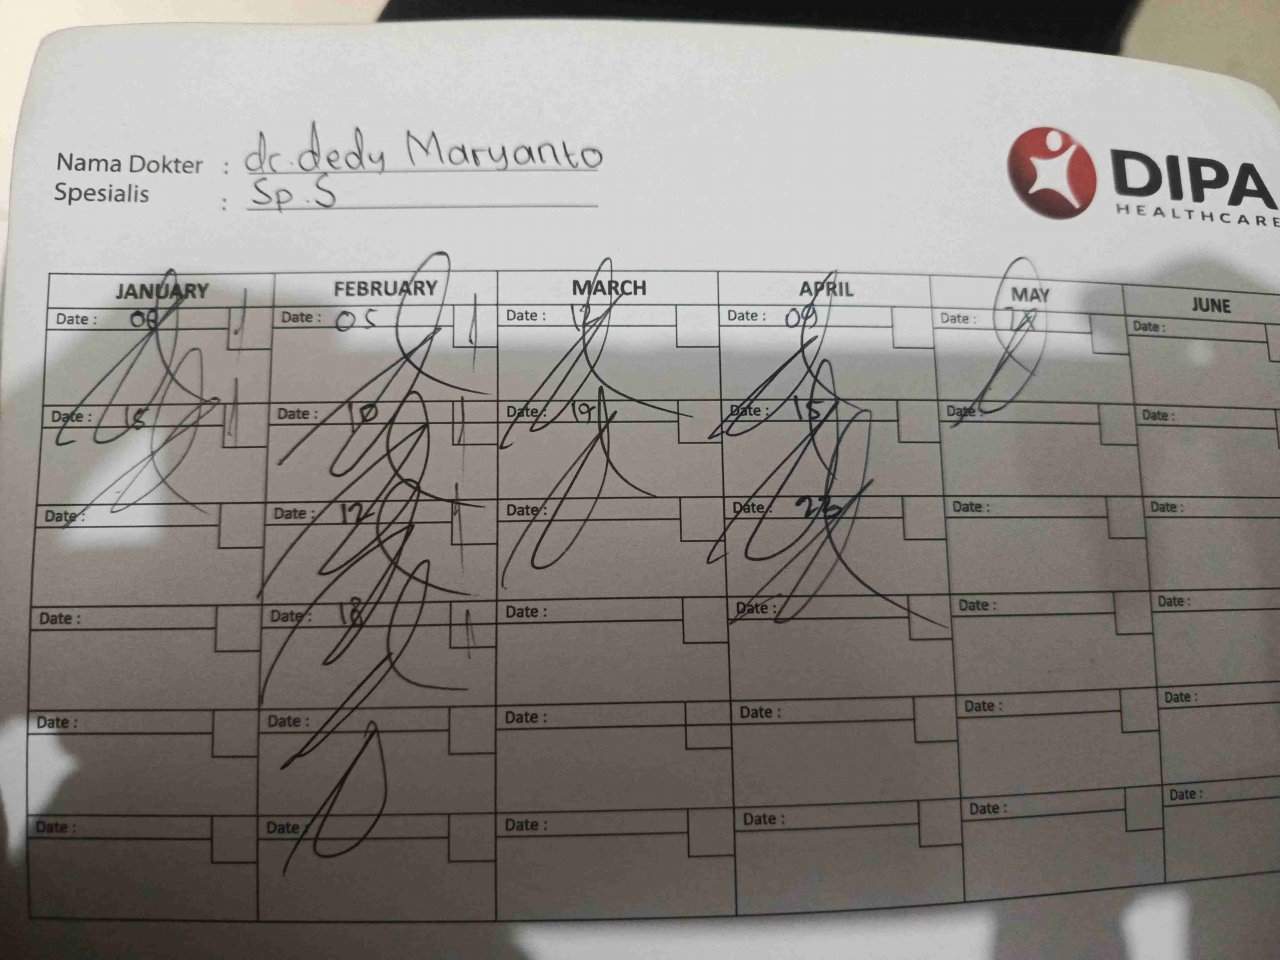 Nama Dokter : dr. dedy Maryanto
Spesialis : Sp.S
DIPA
HEALTHCARE
JANUARY FEBRUARY MARCH APRIL MAY JUNE
Date : 08 Date : 05 Date : Date : 09 Date : Date :
Date : 15 Date : 10 Date : 19 Date : 15 Date : Date :
Date : Date : 12 Date : Date : 23 Date : Date :
Date : Date : 18 Date : Date : Date : Date :
Date : Date : Date : Date : Date : Date :
Date : Date : Date : Date : Date : Date :